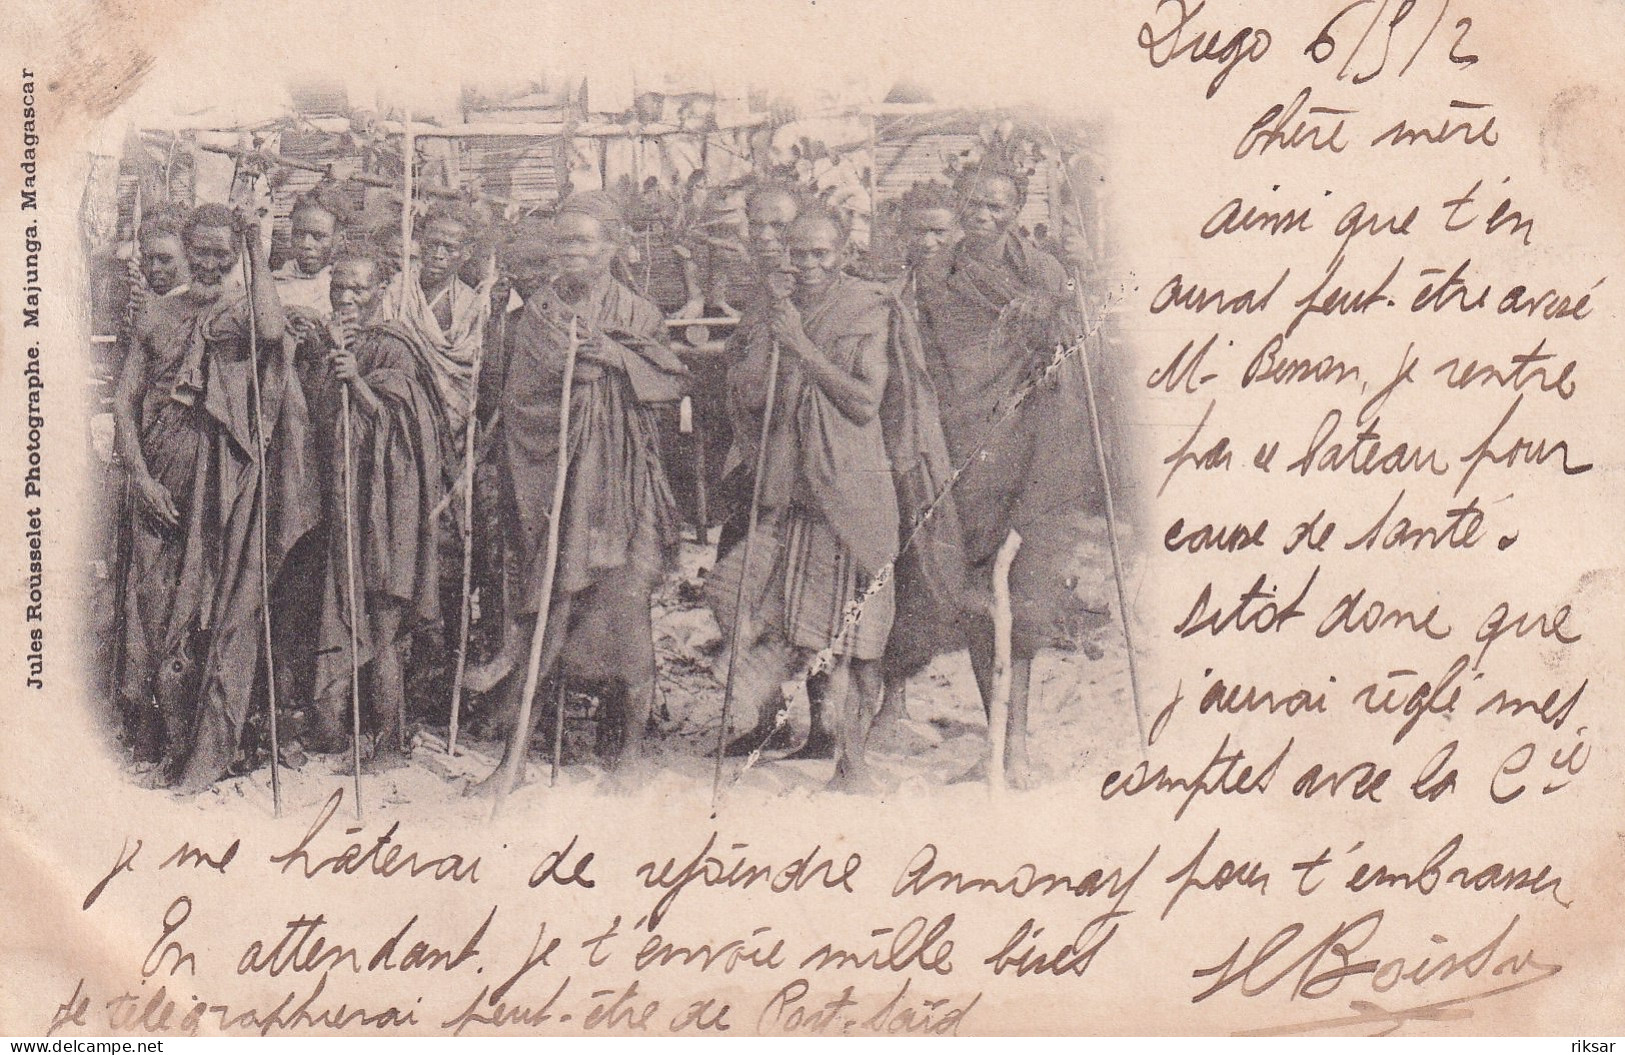 Jules Rousselet Photographe. Majunga. Madagascar
Diego 6/5/2
Chère mère
ainsi que t'en
aurat peut-être avisé
Mr Benon, je rentre
par ce bateau pour
cause de santé.
Sitôt donc que
j'aurai réglé mes
comptes avec la Cie
je me hâterai de rejoindre Annonay pour t'embrasser
En attendant. je t'envoie mille bises
H Boissy
Je télégraphierai peut-être de Port-Saïd
delcampe.net
riksar